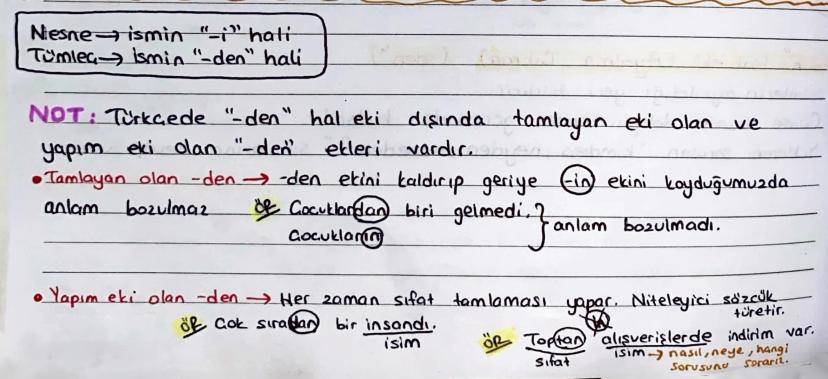 Nesne → ismin "-i" hali
Tümleç → ismin "-den" hali
NOT: Türkçede "-den" hal eki dışında tamlayan eki olan ve
yapım eki olan "-den" ekleri vardır.
• Tamlayan olan -den → -den ekini kaldırıp geriye -in ekini koyduğumuzda
anlam bozulmaz ÖR Çocuklardan biri gelmedi. } anlam bozulmadı.
Çocukların
• Yapım eki olan -den → Her zaman sıfat tamlaması yapar. Niteleyici sözcük
türetir.
ÖR Çok sıradan bir insandı.
isim
ÖR Toptan alışverişlerde indirim var.
sıfat isim → nasıl, neye, hangi
sorusunu sorarız.